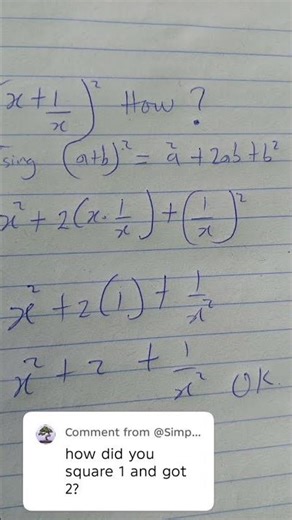 x + 1/x)² How ?
sing (a+b)² = a² + 2ab + b²
x² + 2(x · 1/x) + (1/x)²
x² + 2(1) + 1/x²
x² + 2 + 1/x² OK.
Comment from @Simp...
how did you
square 1 and got
2?